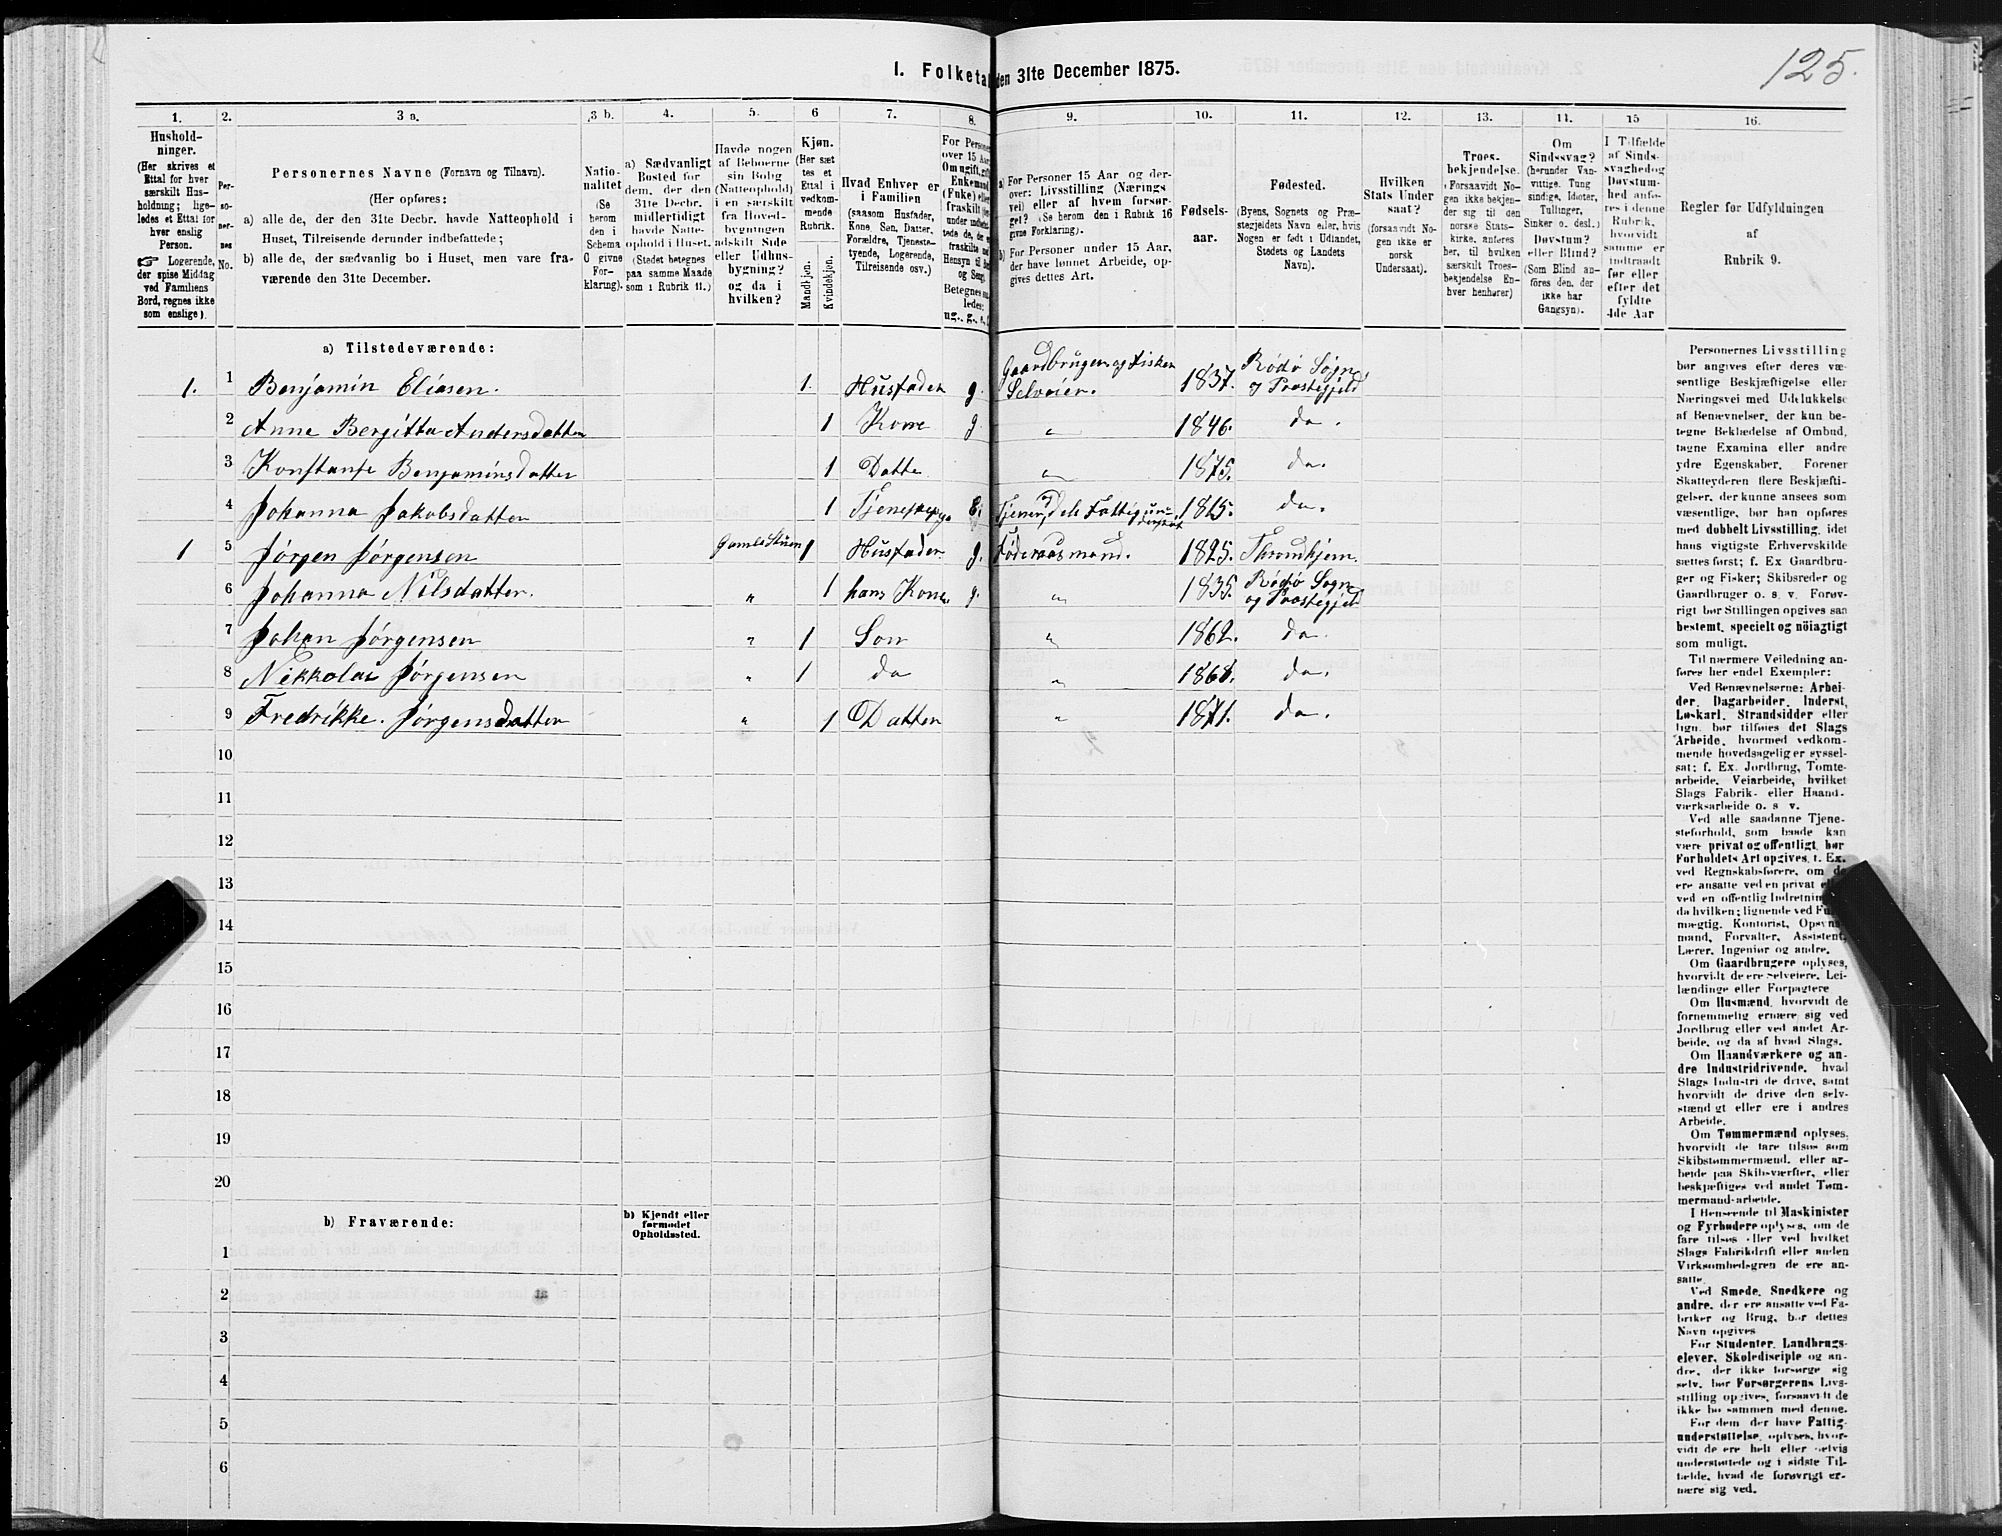 125.
I. Folketal den 31te December 1875.
1.
2.
3 a.
3 b.
4.
5.
6
7.
8.
9.
10.
11.
12.
13.
14.
15
16.
Hushold-
ninger.
(Her skrives et
Ettal for hver
særskilt Hus-
holdning; lige-
ledes et Ettal for
hver enslig
Person.
☞ Logerende,
der spise Middag
ved Familiens
Bord, regnes ikke
som enslige).
Per-
so-
ner-
nes
No.
Personernes Navne (Fornavn og Tilnavn).
(Her opføres:
a) alle de, der den 31te Decbr. havde Natteophold i
Huset, Tilreisende derunder indbefattede;
b) alle de, der sædvanlig bo i Huset, men vare fra-
værende den 31te December.
Natio-
nalitet
(Se
herom
den i
Schema
C givne
For-
klaring).
a) Sædvanligt
Bosted for
dem, der den
31te Decbr.
midlertidigt
havde Natte-
ophold i Huset.
(Stedet betegnes
paa samme Maade
som i Rubrik 11.)
Havde nogen
af Beboerne
sin Bolig
(Natteophold)
i en særskilt
fra Hoved-
bygningen
adskilt Side
eller Udhus-
bygning?
og da i
hvilken?
Kjøn.
(Her sæt-
tes et
Ettal i
vedkom-
mende
Rubrik.
Mandkjøn.
Kvindekjøn.
Hvad Enhver er
i Familien
(saasom Husfader,
Kone, Søn, Datter,
Forældre, Tjeneste-
tyende, Logerende,
Tilreisende osv.)
For Persone
over 15 Aar
Om ugift, gift
Enkemand
(Enke) eller
fraskilt
Betegnes saa
ledes:
ug., g., e.,
a) For Personer 15 Aar og der-
over: Livsstilling (Nærings
vei) eller af hvem forsør-
get? (Se herom den i Rubrik 16
givne Forklaring).
b) For Personer under 15 Aar,
der have lønnet Arbeide, op-
gives dettes Art.
Fødsels-
aar.
Fødested.
(Byens, Sognets og Præ-
stegjeldets Navn eller, hvis
Nogen er født i Udlandet,
Stedets og Landets
Navn).
Hvilken
Stats Under
saat?
(forsaavidt No-
gen ikke er
norsk
Undersaat).
Troes-
bekjendelse.
(Forsaavidt No-
gen ikke bekjen-
der sig til den
norske Stats-
kirke, anføres
her, til hvilken
særskilt Troes-
bekjendelse En-
hver henhører)
Om
Sindssvag?
(herunder Van-
vittige, Tung
sindige, Idioter,
Tullinger,
Sinker o. desl.)
Døvstum?
eller Blind?
(Som Blind an-
føres den, der
ikke har
Gangsyn).
I Tilfælde
af Sinds-
svaghed og
Døvstum-
hed anfø-
res i denne
Rubrik,
hvorvidt
samme er
indtraadt
før eller
efter det
fyldte
4de Aar
Regler før Udfyldningen
af
Rubrik 9.
a) Tilstedeværende:
1. 1 Benjamin Eliasen. 1. Husfader g. Gaardbruger og Fisker Selveier. 1837. Rödö Sogn og Præstegjeld
2 Anne Bergitta Andersdatter 1 Kone g. " 1846. do.
3 Konstanse Benjaminsdatter 1 Datter " 1875. do.
4 Johanna Jakobsdatter 1 E. 1815. do.
1 5 Jörgen Jörgensen Gamle Stuen 1 Husfader g. Föderaadsmand. 1825. Throndhjem.
6 Johanna Nilsdatter. " 1 hans Kone. g. " 1835. Rödö Sogn og Præstegjeld
7 Johan Jörgensen " 1 Sön " 1862. do.
8 Nikkolai Jörgensen " 1 do " 1868. do.
9 Fredrikke. Jörgensdatter " 1 Datter " 1871. do.
10
11
12
13
14
15
16
17
18
19
20
b) Fraværende:
b) Kjendt eller
formodet
Opholdssted.
1
2
3
4
5
6
Personernes Livsstilling
bør angives efter deres væ-
sentlige Beskjæftigelse eller
Næringsvei med Udelukkelse
af Benævnelser, der kun be-
tegne Beklædelse af Ombud,
tagne Examina eller andre
ydre Egenskaber. Forener
Skatteyderen flere Beskjæfti-
gelser, der kunne ansees som
væsentlige, bør han opføres
med dobbelt Livsstilling, idet
hans vigtigste Erhvervskilde
sættes først; f. Ex Gaardbru-
ger og Fisker; Skibsreder og
Gaardbruger o. s. v. Forøv-
rigt bør Stillingen opgives saa
bestemt, specielt og nöiagtigt
som muligt.
Til nærmere Veiledning an-
føres her endel Exempler:
Ved Benævnelserne: Arbei-
der, Dagarbeider, Inderst,
Løskarl, Strandsidder eller
lign. bør tilføies det Slags
Arbeide, hvormed vedkom-
mende hovedsagelig er syssel-
sat; f. Ex. Jordbrug, Tomte-
arbeide, Veiarbeide, hvilket
Slags Fabrik- eller Haand-
værksarbeide o. s v.
Ved alle saadanne Tjene-
steforhold, som baade kan
være privat og offentligt, bør
Forholdets Art opgives, t. Ex.
ved Regnskabsførere, om de
ere ansatte ved en privat
ved en offentlig Indretning
da hvilken; lignende ved Fuld-
mægtig, Kontorist, Opsyns-
mand, Forvalter, Assistent,
Lærer, Ingeniør og andre.
Om Gaardbrugere oplyses,
hvorvidt de ere Selveiere, Lei-
lændinge eller Forpagtere
Om Husmænd, hvorvidt de
fornemmelig ernære sig ved
Jordbrug eller ved andet Ar-
beide, og da af hvad Slags.
Om Haandværkere og an-
dre Industridrivende, hvad
Slags Industri de drive, samt
hvorvidt de drive den selv-
stændigt eller ere i andres
Arbeide.
Om Tømmermænd oplyses,
hvorvidt de fare tilsøs som
Skibstømmermænd, eller ar-
beide paa Skibsværfter, eller
beskjæftiges ved andet Tøm-
mermand-arbeide.
I Henseende til Maskinister
og Fyrbødere oplyses, om de
fare tilsøs eller ved hvilket
Slags Fabrikdrift eller anden
Virksomhedsgren de ere an-
satte.
Ved Smede, Snedkere og
andre, der ere ansatte ved Fa-
briker og Brug, bør dettes
Navn opgives
For Studenter, Landbrugs-
elever, Skoledisciple og an-
dre, der ikke forsørge sig
selv, bør Forsørgerens Livs-
stilling opgives, forsaavidt de
ikke bo sammen med denne.
For dem, der have Fattig-
understøttelse, oplyses, hvor-
vidt de ere helt eller delvis
understøttede og i sidste Til-
fælde, hvad de forøvrigt er-
nære sig ved.